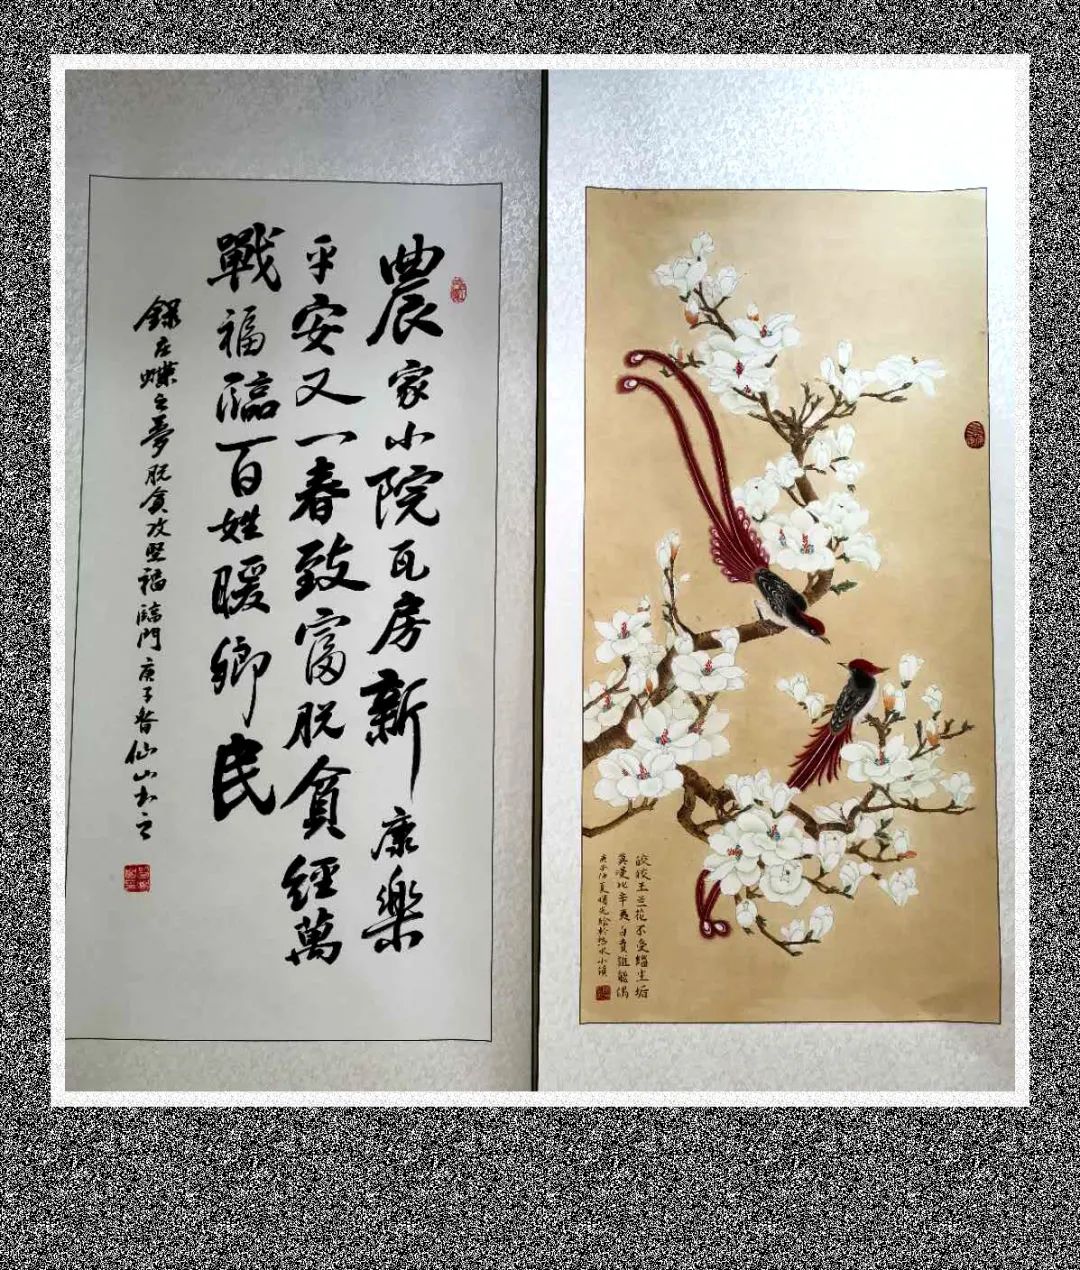 農家小院瓦房新康樂
平安又一春致富脱貧經萬
戰福臨百姓暖鄉民
錄左蝶之夢脱貧攻堅福臨門庚子春仙山書
皎皎玉兰花不受緇尘垢
莫漫比辛夷白賁誰能偶
庚子仲夏